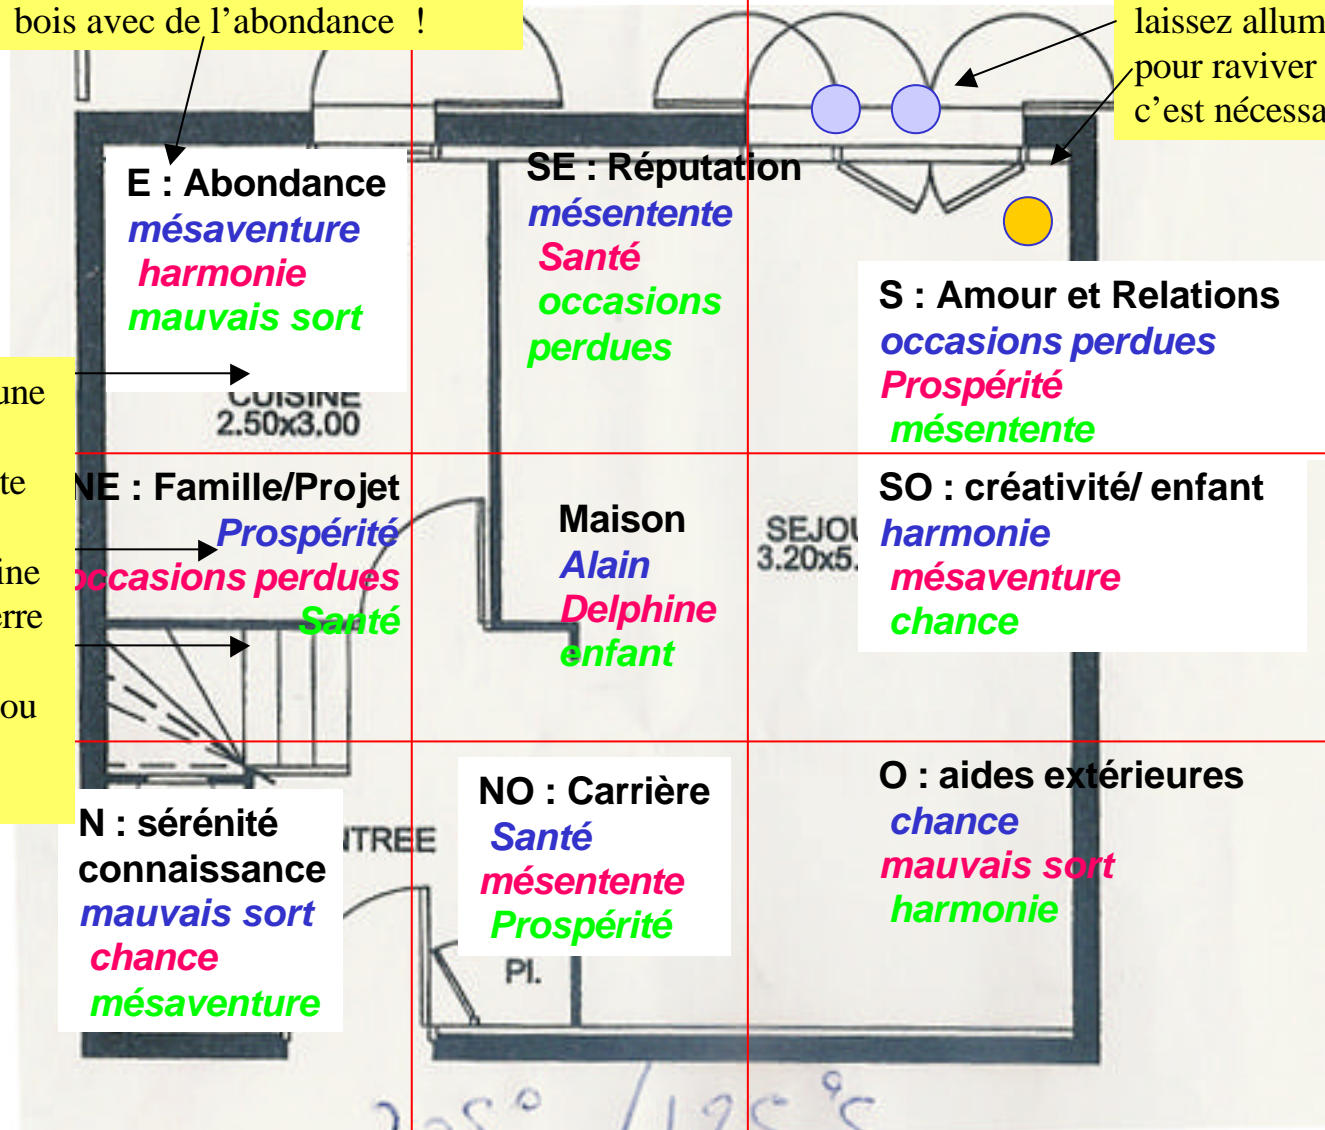 bois avec de l’abondance !
laissez allum
pour raviver
c’est nécessa
E : Abondance
mésaventure
harmonie
mauvais sort
SE : Réputation
mésentente
Santé
occasions
perdues
S : Amour et Relations
occasions perdues
Prospérité
mésentente
une
te
ine
erre
ou
CUISINE
2.50x3.00
NE : Famille/Projet
Prospérité
occasions perdues
Santé
Maison
Alain
Delphine
enfant
SEJOU
3.20x5.
SO : créativité/ enfant
harmonie
mésaventure
chance
N : sérénité
connaissance
mauvais sort
chance
mésaventure
NTREE
NO : Carrière
Santé
mésentente
Prospérité
Pl.
O : aides extérieures
chance
mauvais sort
harmonie